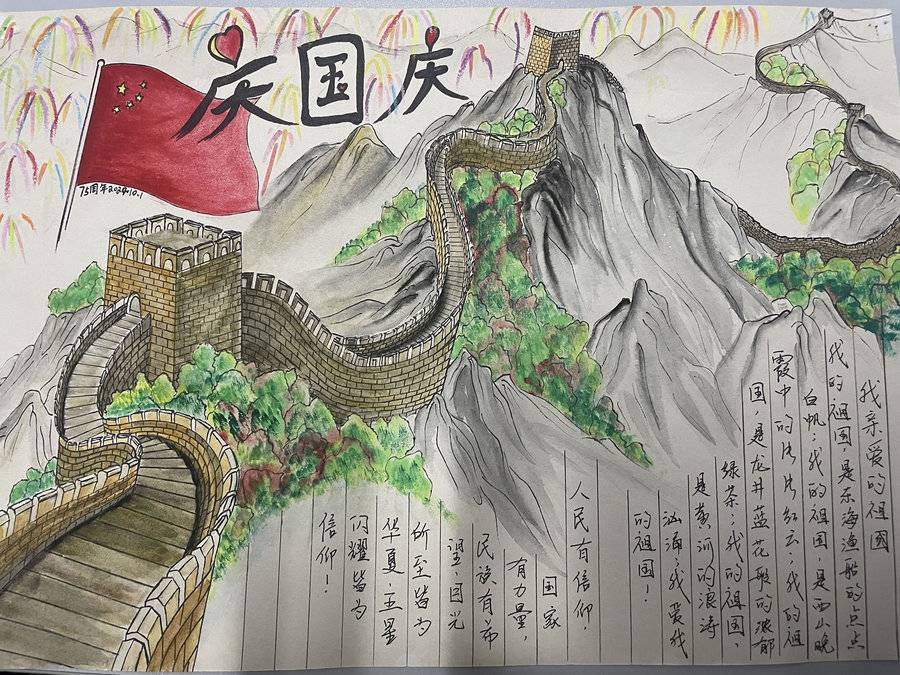 庆国庆
75周年2024.10.1
我亲爱的祖国
我的祖国,是东海渔船的点点
白帆;我的祖国,是西山晚
霞中的片片红云;我的祖
国,是龙井蓝花般的浓郁
绿茶;我的祖国,
是黄河的浪涛
汹涌;我爱我
的祖国!
人民有信仰,
国家
有力量,
民族有希
望,目光
所至皆为
华夏,五星
闪耀皆为
信仰!